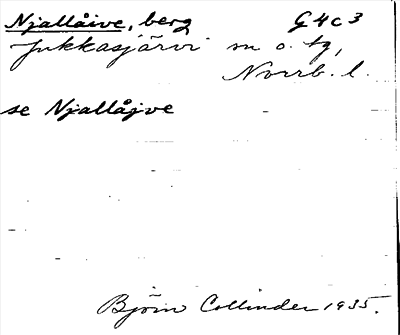 Njallåive, berg G4c3
Jukkasjärvi sn o. tg,
Norrb. l.
se Njallåjve
Björn Collinder 1935.